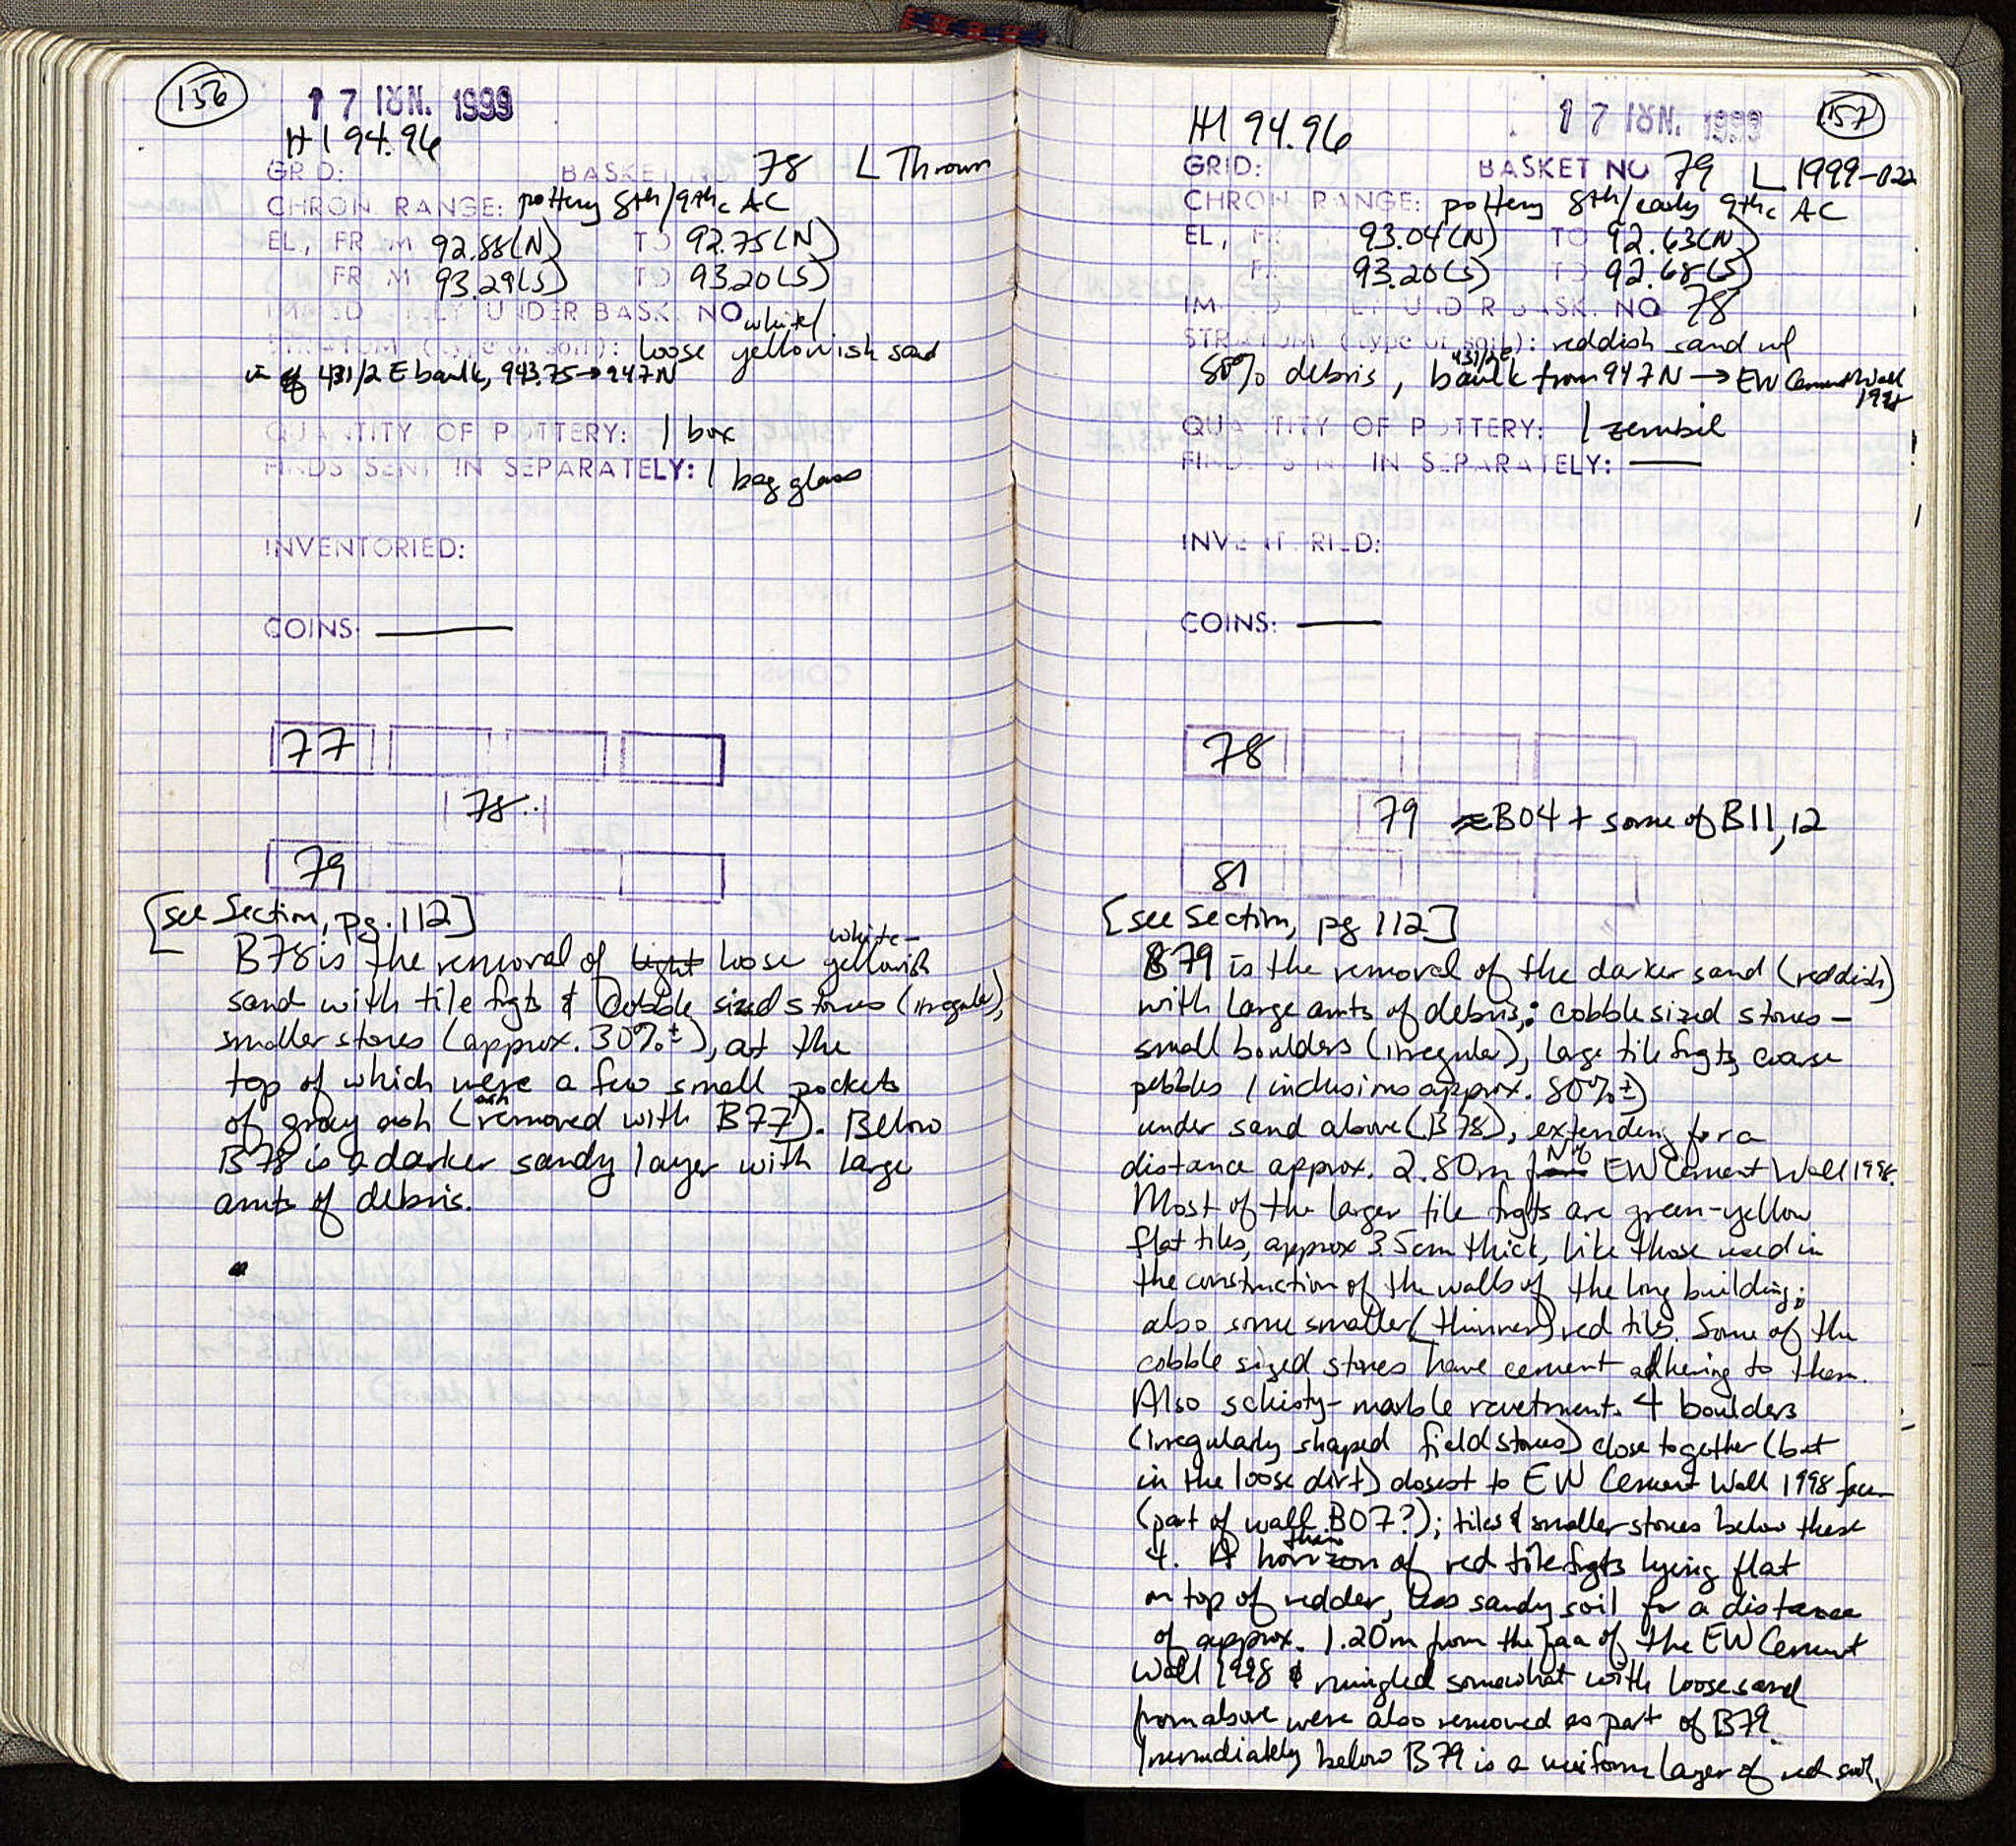 156
17 ΙΟΥΝ. 1999
H1 94.96
GRID: BASKET NO 78 L Thrown
CHRON. RANGE: pottery 8th/9th c AC
EL, FROM 92.88(N) TO 92.75(N)
FROM 93.29(S) TO 93.20(S)
IMMEDIATELY UNDER BASK. NO
white/
STRATUM (type of soil): loose yellowish sand
431/2 E baulk, 943.75→947N
QUANTITY OF POTTERY: 1 box
FINDS SENT IN SEPARATELY: 1 bag glass
INVENTORIED:
COINS: —
77
78
79
[see Section, pg. 112]
white-
B78 is the removal of light loose yellowish
sand with tile frgts & cobble sized stones (irregular),
smaller stones (approx. 30%±), at the
top of which were a few small pockets
of gray ash (removed with B77). Below
ash
B78 is a darker sandy layer with large
amts of debris.
157
17 ΙΟΥΝ. 1999
H1 94.96
GRID: BASKET NO 79 L 1999-022
CHRON RANGE: pottery 8th/early 9th c AC
EL, FR 93.04(N) TO 92.63(N)
FR 93.20(S) TO 92.68(S)
IMMEDIATELY UNDER BASK. NO 78
STRATUM (type of soil): reddish sand w/
431/2E
80% debris, baulk from 947N → EW Cement Wall
1998
QUANTITY OF POTTERY: 1 zembil
FINDS SENT IN SEPARATELY: —
INVENTORIED:
COINS: —
78
79 ≈B04 + some of B11, 12
81
[see Section, pg 112]
B79 is the removal of the darker sand (reddish)
with large amts of debris: cobble sized stones –
small boulders (irregular), large tile frgts, coarse
pebbles (inclusions approx. 80%±)
under sand above (B78), extending for a
distance approx. 2.80m from EW Cement Wall 1998.
N of
Most of the larger tile frgts are green-yellow
flat tiles, approx 3.5cm thick, like those used in
the construction of the walls of the long building;
also some smaller (thinner) red tiles. Some of the
cobble sized stones have cement adhering to them.
Also schisty-marble revetment. 4 boulders
(irregularly shaped fieldstones) close together (but
in the loose dirt) closest to EW Cement Wall 1998 face
(part of wall B07?); tiles & smaller stones below these
thin
4. A horizon of red tile frgts lying flat
on top of redder, less sandy soil for a distance
of approx. 1.20m from the face of the EW Cement
Wall 1998 & mingled somewhat with loose sand
from above were also removed as part of B79.
Immediately below B79 is a uniform layer of red soil.